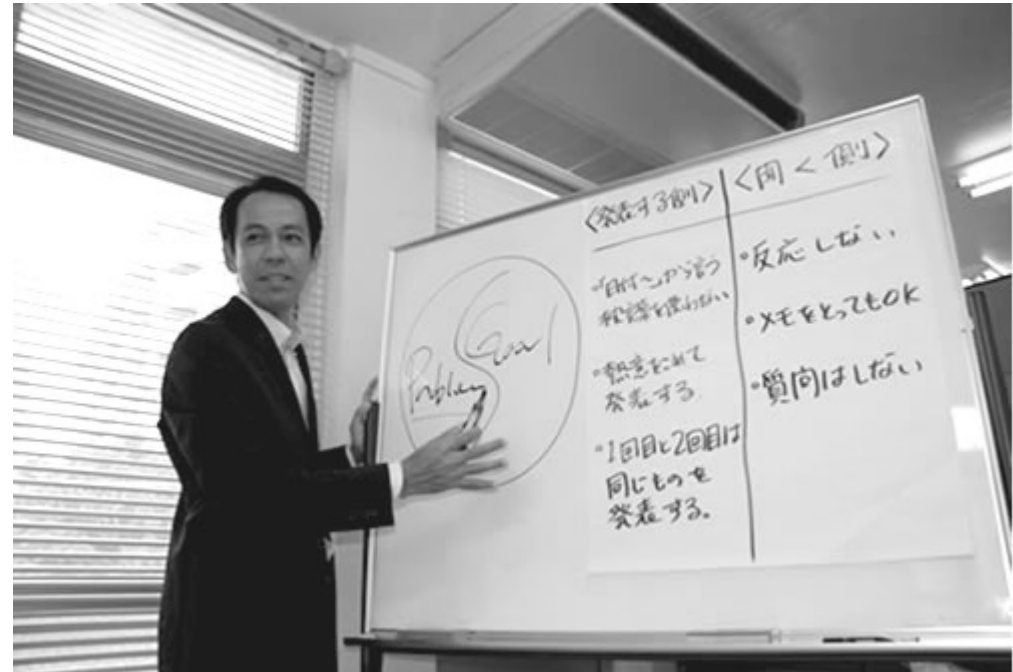 Problem
Goal
〈発表する側〉
から言う
・熱意をこめて
発表する。
・1回目と2回目は
同じものを
発表する。
〈聞く側〉
・反応しない
・メモをとってもOK
・質問はしない